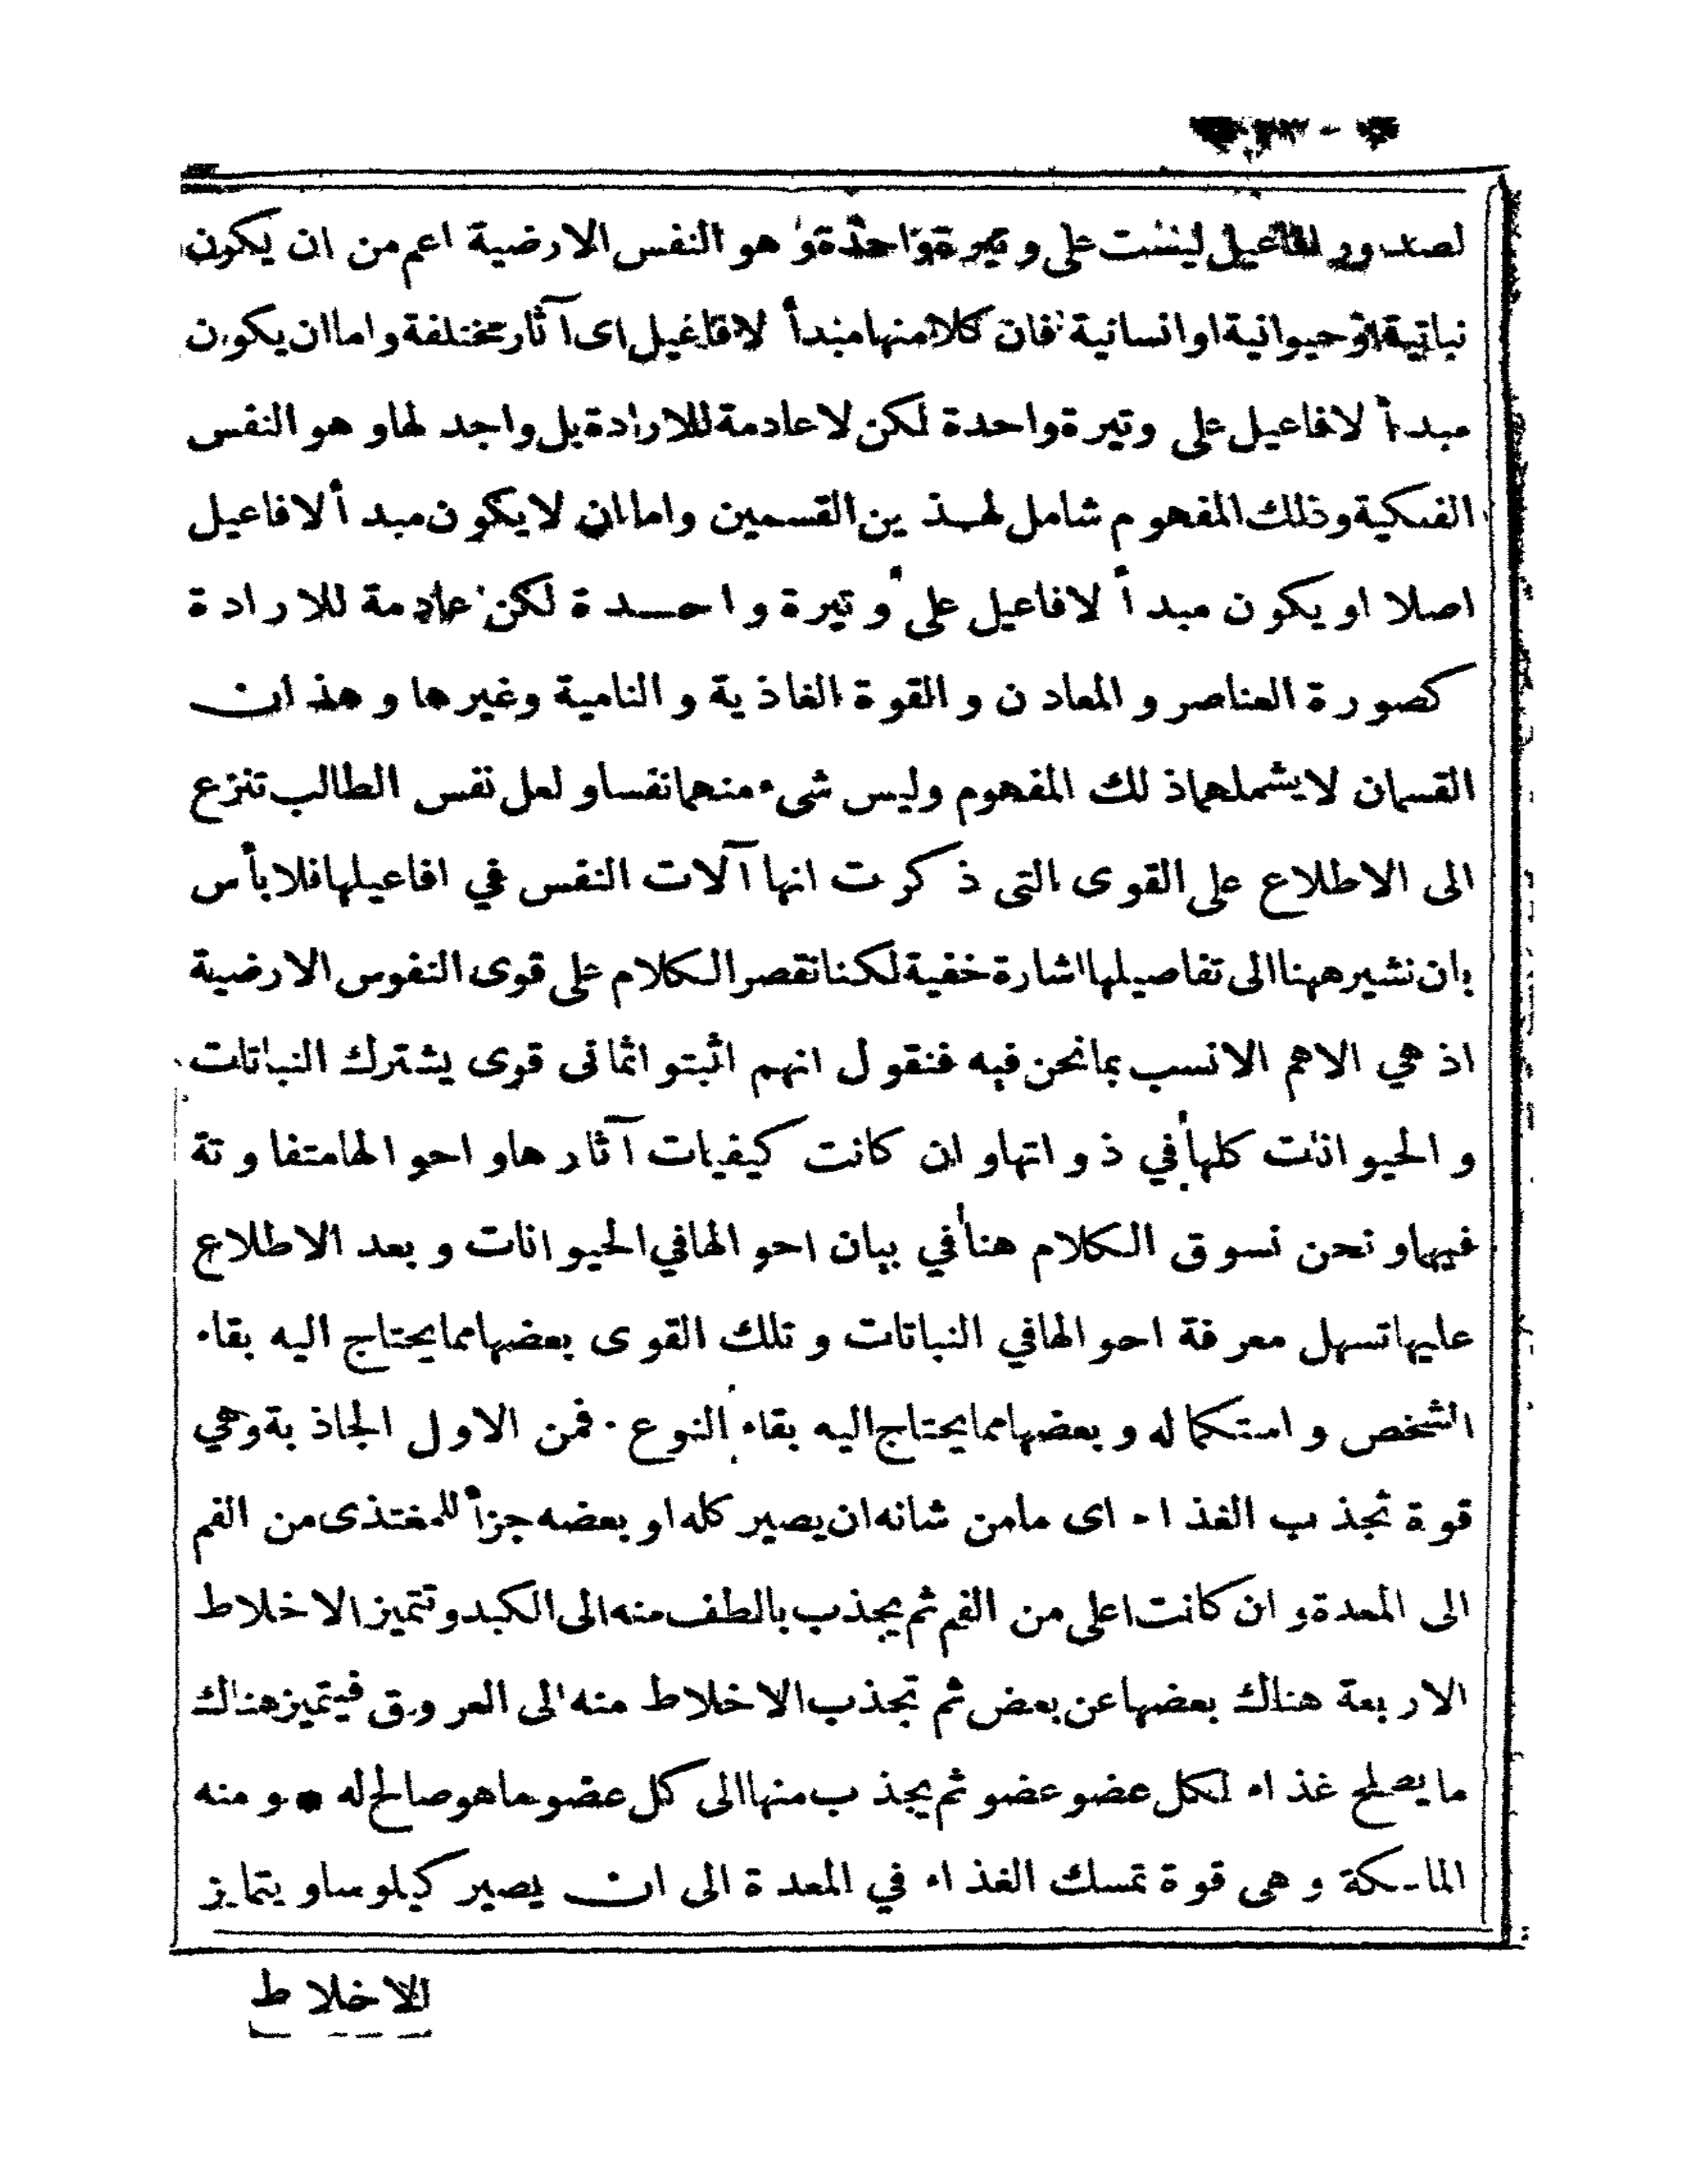 لصدور افاعيل ليست على وتيرة واحدة و هو النفس الارضية اعم من ان يكون
نباتية او حيوانية او انسانية فان كلا منها مبدأ لافاعيل اى آثار مختلفة و اما ان يكون
مبدأ لافاعيل على وتيرة واحدة لكن لا عادمة للارادة بل واجد لها و هو النفس
الفلكية و ذلك المفهوم شامل لهذين القسمين و اما ان لا يكون مبدأ لافاعيل
اصلا او يكون مبدأ لافاعيل على وتيرة واحدة لكن عادمة للارادة
كصورة العناصر و المعادن و القوة الغاذية و النامية وغيرها و هذان
القسمان لا يشملهما ذلك المفهوم وليس شىء منهما نفسا و لعل نفس الطالب تنزع
الى الاطلاع على القوى التى ذكرت انها آلات النفس في افاعيلها فلا بأس
بان نشير ههنا الى تفاصيلها اشارة خفية لكنا نقصر الكلام على قوى النفوس الارضية
اذ هي الاهم الانسب بما نحن فيه فنقول انهم اثبتوا ثمانى قوى يشترك النباتات
و الحيوانات كلها في ذواتها و ان كانت كيفيات آثارها و احوالها متفاوتة
فيها و نحن نسوق الكلام هنا في بيان احوالها في الحيوانات و بعد الاطلاع
عليها تسهل معرفة احوالها في النباتات و تلك القوى بعضها مما يحتاج اليه بقاء
الشخص و استكماله و بعضها مما يحتاج اليه بقاء النوع · فمن الاول الجاذبة وهي
قوة تجذب الغذاء اى ما من شانه ان يصير كله او بعضه جزأ للمغتذى من الفم
الى المعدة و ان كانت اعلى من الفم ثم يجذب بالطف منه الى الكبد و تتميز الاخلاط
الاربعة هناك بعضها عن بعض ثم تجذب الاخلاط منه الى العروق فيتميز هناك
ما يصلح غذاء لكل عضو عضو ثم يجذب منها الى كل عضو ما هو صالح له * و منه
الماسكة و هى قوة تمسك الغذاء في المعدة الى ان يصير كيلوسا و يتمايز
الاخلاط